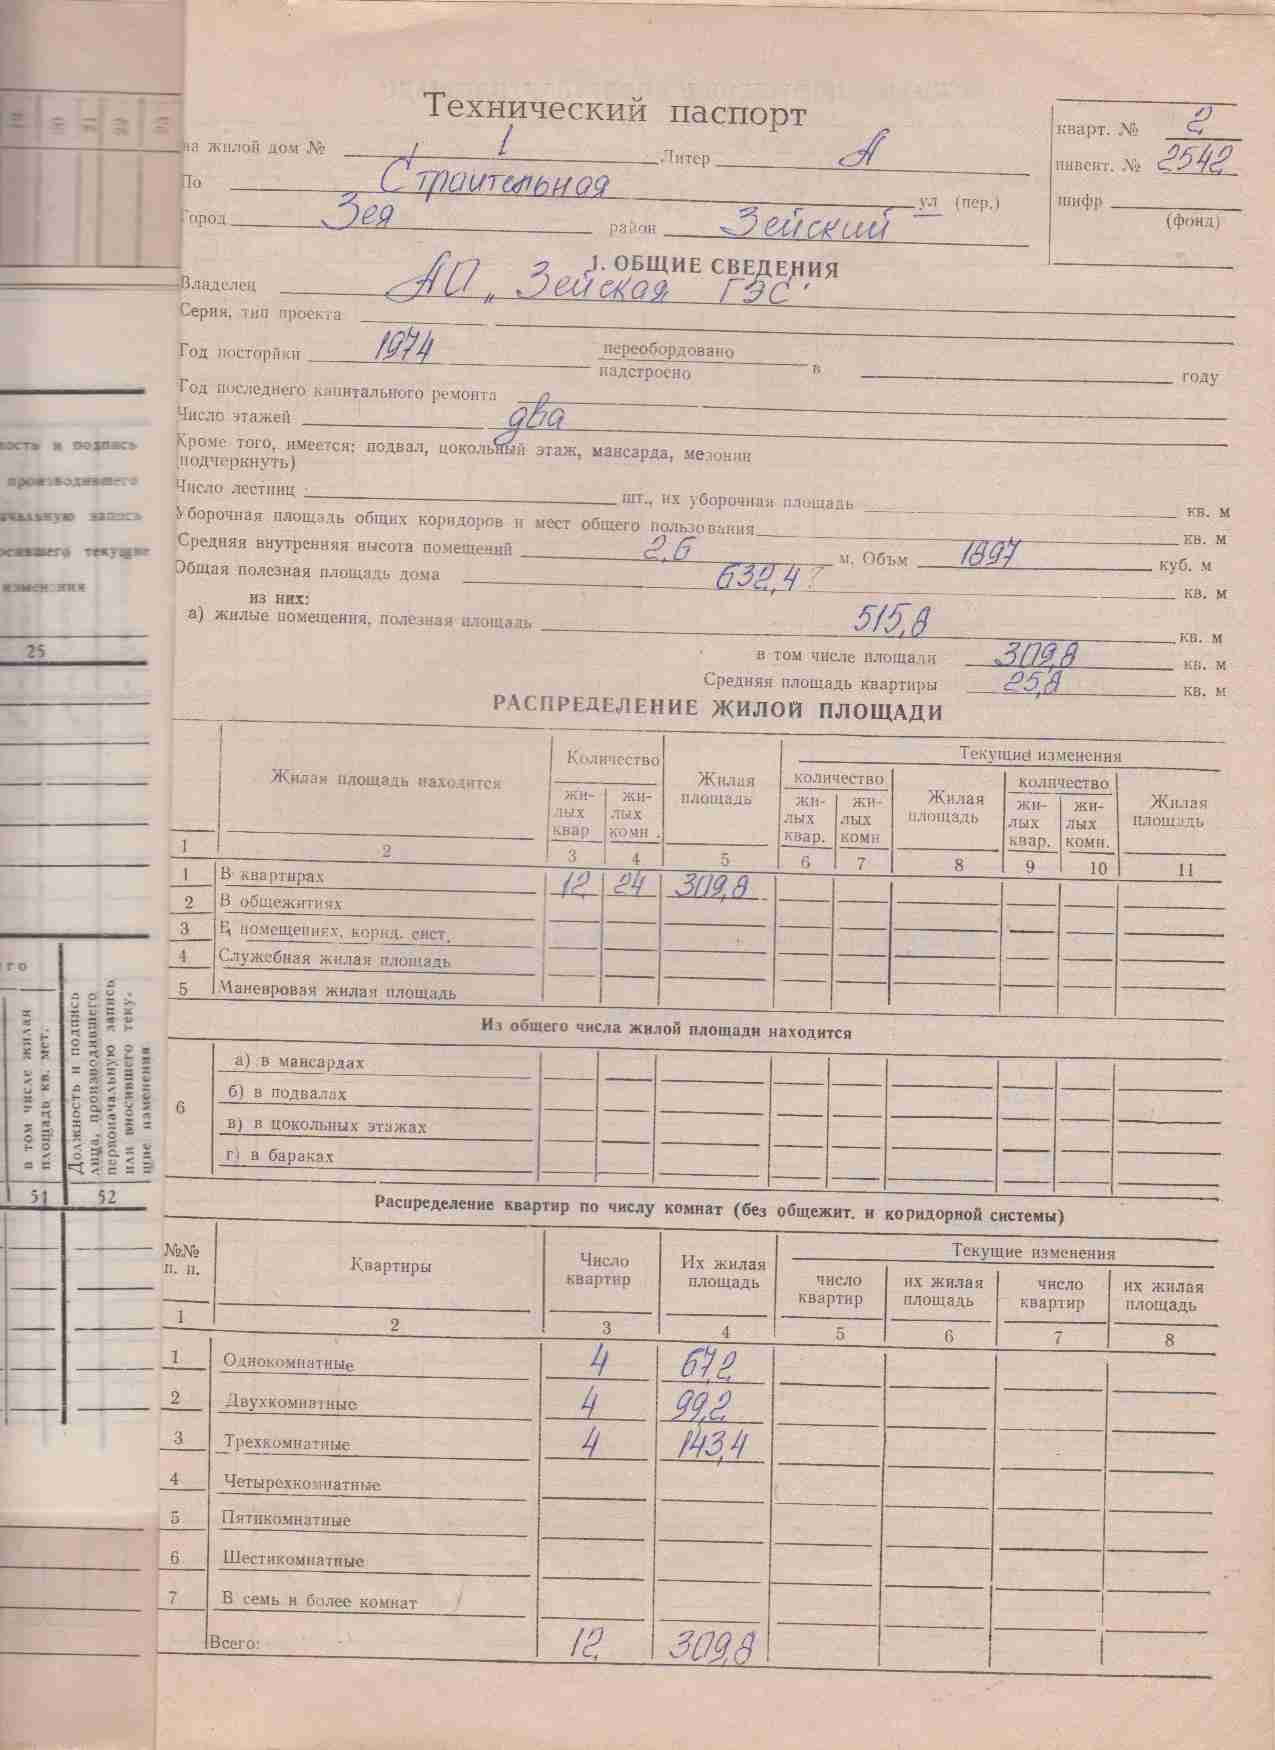 Технический паспорт
на жилой дом № 1 Литер А
По Строительная ул (пер.)
Город Зея район Зейский
кварт. № 2
инвент. № 2542
шифр
(фонд)
1. ОБЩИЕ СВЕДЕНИЯ
Владелец АП „Зейская ГЭС"
Серия, тип проекта
Год посторйки 1974 переобордовано
надстроено в году
Год последнего капитального ремонта
Число этажей два
Кроме того, имеется: подвал, цокольный этаж, мансарда, мезонин
(подчеркнуть)
Число лестниц шт., их уборочная площадь кв. м
Уборочная площадь общих коридоров и мест общего пользования кв. м
Средняя внутренняя высота помещений 2,6 м. Объм 1897 куб. м
Общая полезная площадь дома 632,4? кв. м
из них:
а) жилые помещения, полезная площадь 515,8 кв. м
в том числе площади 309,8 кв. м
Средняя площадь квартиры 25,8 кв. м
РАСПРЕДЕЛЕНИЕ ЖИЛОЙ ПЛОЩАДИ
Жилая площадь находится
Количество
жи-
лых
квар
жи-
лых
комн.
Жилая
площадь
Текущие изменения
количество
жи-
лых
квар.
жи-
лых
комн
Жилая
площадь
количество
жи-
лых
квар.
жи-
лых
комн.
Жилая
площадь
1 2 3 4 5 6 7 8 9 10 11
1 В квартирах 12 24 309,8
2 В общежитиях
3 В помещениях, корид. сист.
4 Служебная жилая площадь
5 Маневровая жилая площадь
Из общего числа жилой площади находится
6
а) в мансардах
б) в подвалах
в) в цокольных этажах
г) в бараках
Распределение квартир по числу комнат (без общежит. и коридорной системы)
№№
п. п.
Квартиры
Число
квартир
Их жилая
площадь
Текущие изменения
число
квартир
их жилая
площадь
число
квартир
их жилая
площадь
1 2 3 4 5 6 7 8
1 Однокомнатные 4 67,2
2 Двухкомнатные 4 99,2
3 Трехкомнатные 4 143,4
4 Четырехкомнатные
5 Пятикомнатные
6 Шестикомнатные
7 В семь и более комнат
Всего: 12 309,8
19 20 21 22 23
и подпись
производившего
запись
текущие
изменения
25
в том числе жилая
площадь кв. мет.
Должность и подпись
лица, производившего
первоначальную запись
или вносившего теку-
щие изменения
51 52